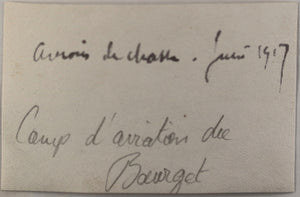 avions de chasse. Juin 1917
Camp d'aviation du
Bourget